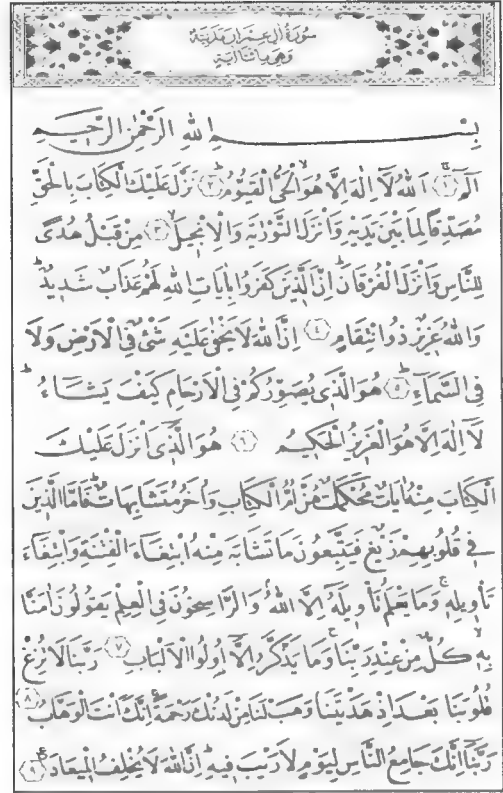 سُورَةُ اٰلِ عِمْرٰنَ مَدَنِيَّةٌ
وَهِيَ مِائَتَا اٰيَةٍ
بِسْمِ اللهِ الرَّحْمٰنِ الرَّحِيمِ
الٓمٓ ﴿١﴾ اَللهُ لَٓا اِلٰهَ اِلَّا هُوَ الْحَىُّ الْقَيُّومُ ﴿٢﴾ نَزَّلَ عَلَيْكَ الْكِتَابَ بِالْحَقِّ
مُصَدِّقًا لِمَا بَيْنَ يَدَيْهِ وَاَنْزَلَ التَّوْرٰيةَ وَالْاِنْجِيلَ ﴿٣﴾ مِنْ قَبْلُ هُدًى
لِلنَّاسِ وَاَنْزَلَ الْفُرْقَانَ اِنَّ الَّذِينَ كَفَرُوا بِاٰيَاتِ اللهِ لَهُمْ عَذَابٌ شَدِيدٌ
وَاللهُ عَزِيزٌ ذُوانْتِقَامٍ ﴿٤﴾ اِنَّ اللهَ لَا يَخْفٰى عَلَيْهِ شَىْءٌ فِى الْاَرْضِ وَلَا
فِى السَّمَٓاءِ ﴿٥﴾ هُوَ الَّذِى يُصَوِّرُكُمْ فِى الْاَرْحَامِ كَيْفَ يَشَٓاءُ
لَٓا اِلٰهَ اِلَّا هُوَ الْعَزِيزُ الْحَكِيمُ ﴿٦﴾ هُوَ الَّذِٓى اَنْزَلَ عَلَيْكَ
الْكِتَابَ مِنْهُ اٰيَاتٌ مُحْكَمَاتٌ هُنَّ اُمُّ الْكِتَابِ وَاُخَرُ مُتَشَابِهَاتٌ فَاَمَّا الَّذِينَ
فِى قُلُوبِهِمْ زَيْغٌ فَيَتَّبِعُونَ مَا تَشَابَهَ مِنْهُ ابْتِغَٓاءَ الْفِتْنَةِ وَابْتِغَٓاءَ
تَأْوِيلِهِ وَمَا يَعْلَمُ تَأْوِيلَهُٓ اِلَّا اللهُ وَالرَّاسِخُونَ فِى الْعِلْمِ يَقُولُونَ اٰمَنَّا
بِهِ كُلٌّ مِنْ عِنْدِ رَبِّنَا وَمَا يَذَّكَّرُ اِلَّٓا اُولُوا الْاَلْبَابِ ﴿٧﴾ رَبَّنَا لَا تُزِغْ
قُلُوبَنَا بَعْدَ اِذْ هَدَيْتَنَا وَهَبْ لَنَا مِنْ لَدُنْكَ رَحْمَةً اِنَّكَ اَنْتَ الْوَهَّابُ ﴿٨﴾
رَبَّنَٓا اِنَّكَ جَامِعُ النَّاسِ لِيَوْمٍ لَا رَيْبَ فِيهِ اِنَّ اللهَ لَا يُخْلِفُ الْمِيعَادَ ﴿٩﴾